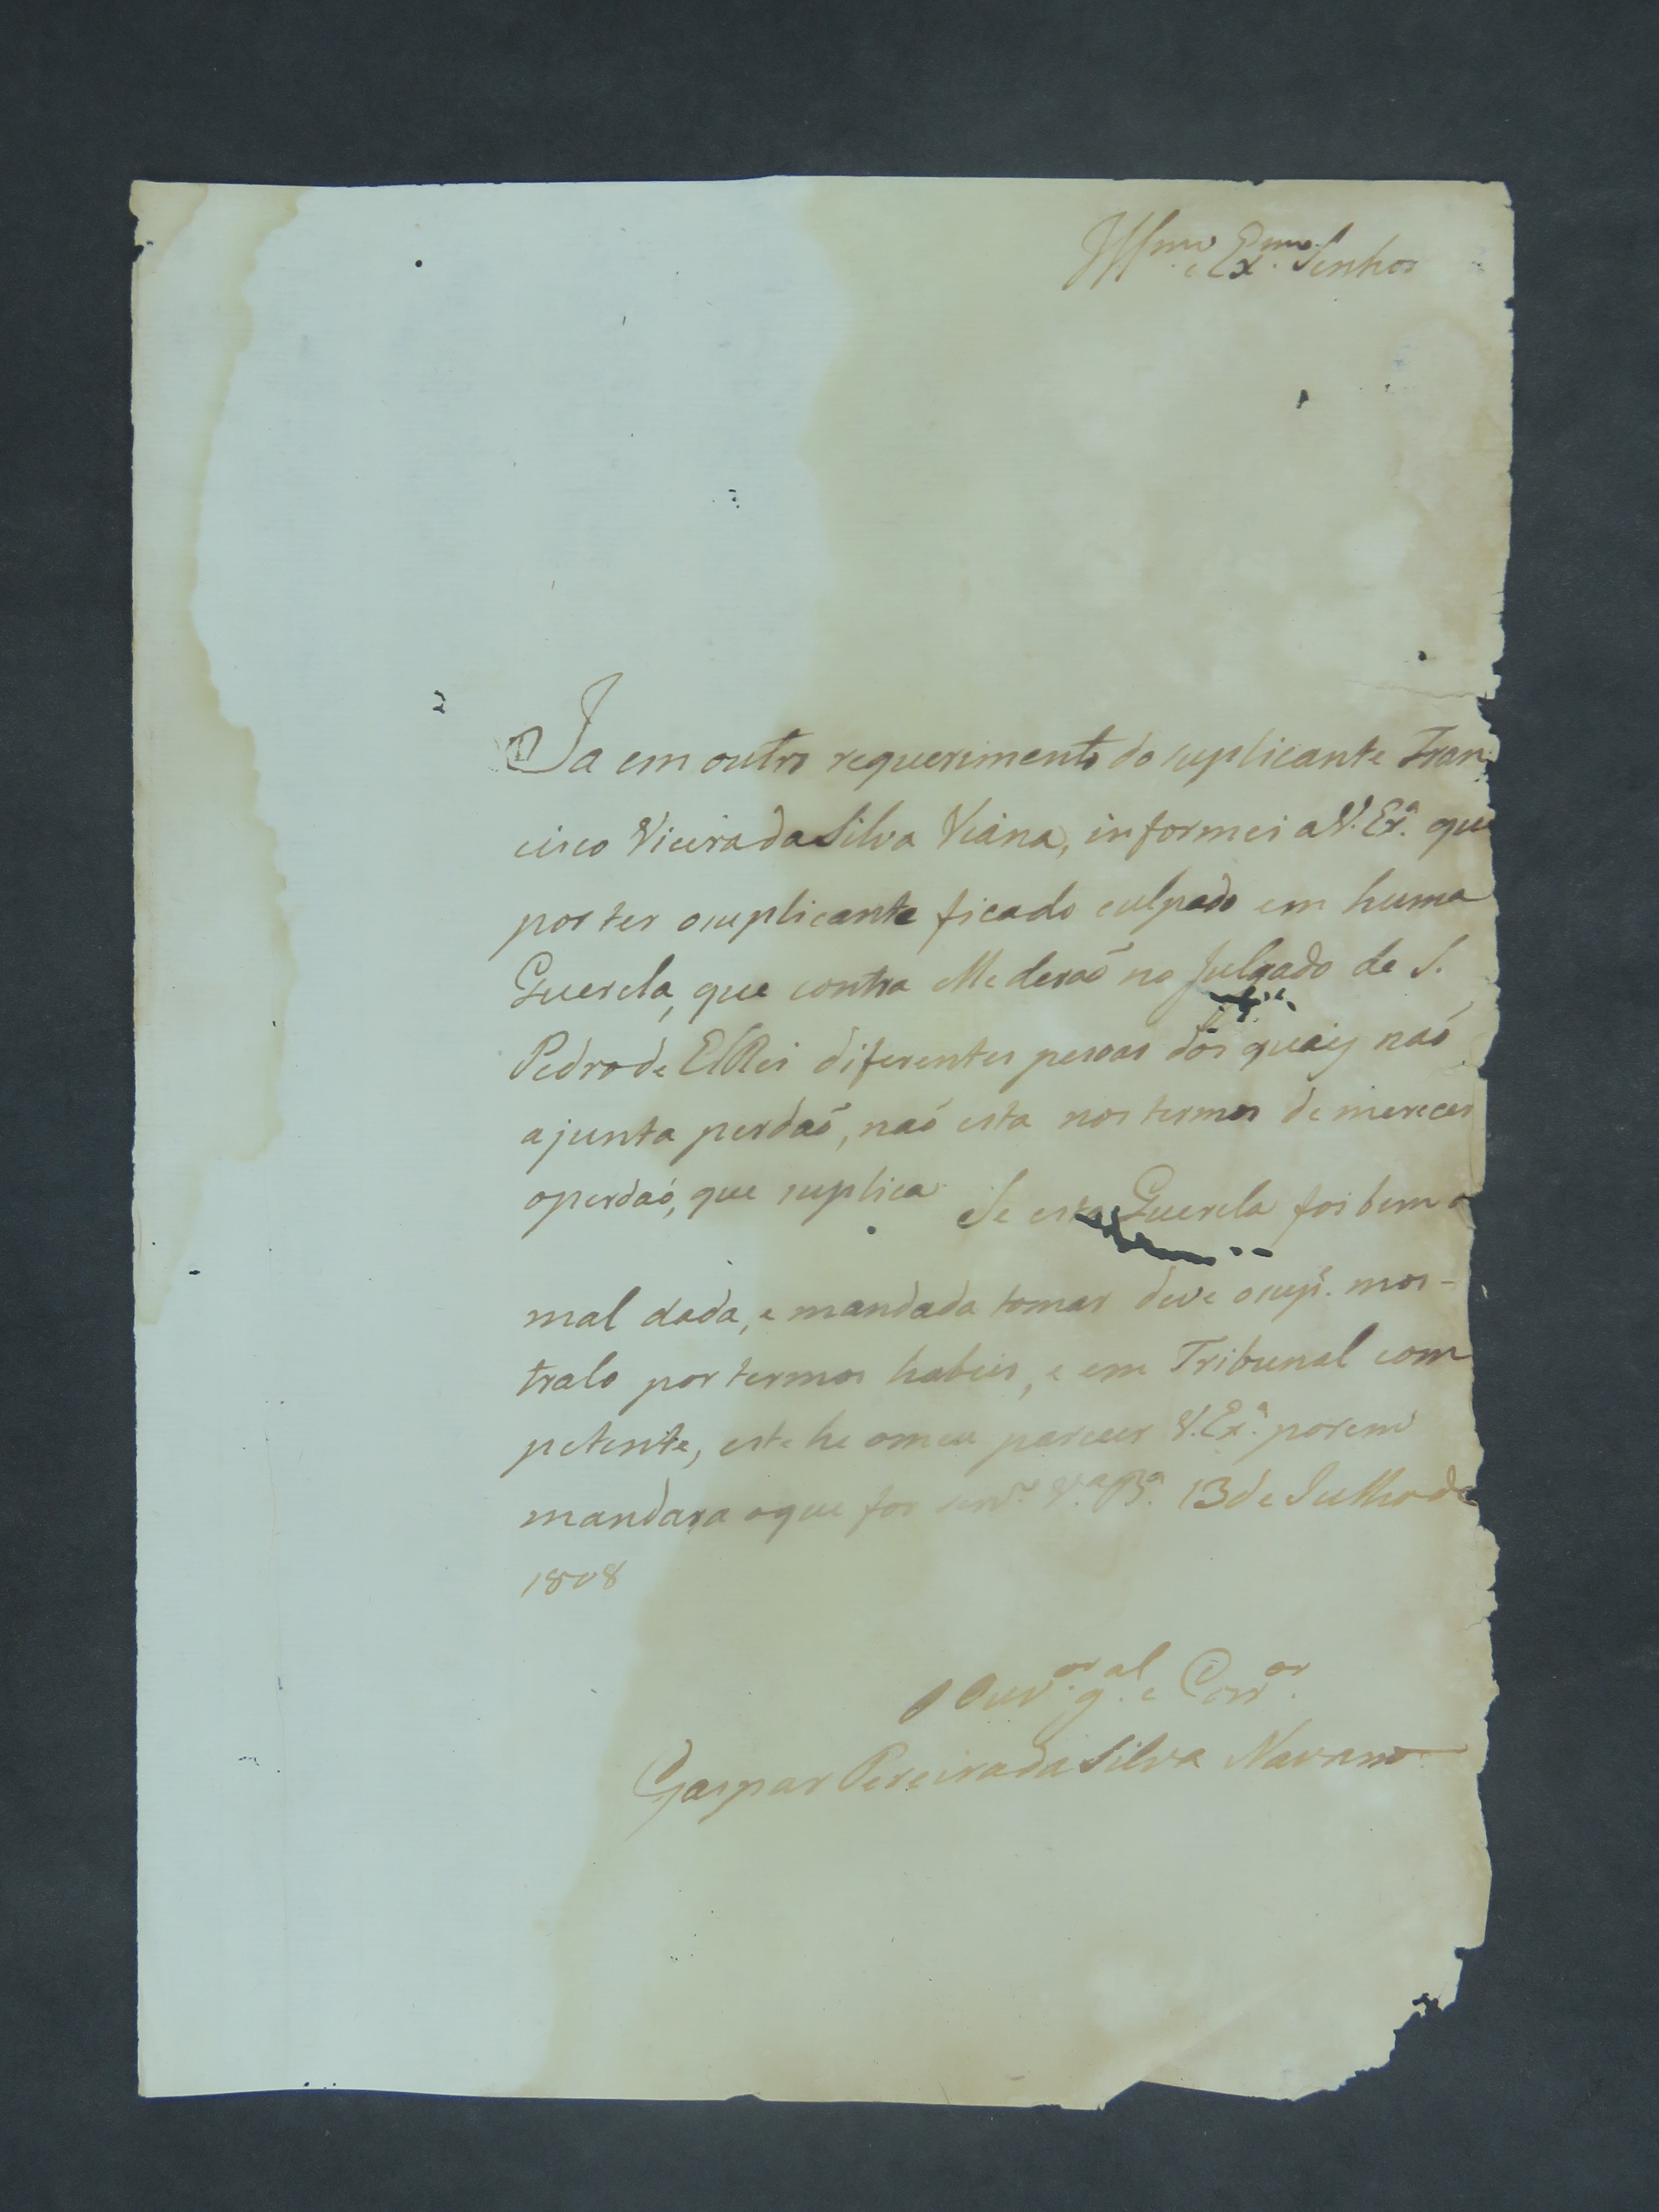 Illmo. e Exmo. Senhor
Ja em outro requerimento do suplicante Fran
cisco Vieira da Silva Viana, informei a V. Exª. que
por ter o suplicante ficado culpado em huma
Querela, que contra elle deraõ no Julgado de S.
Pedro de ElRei diferentes pesoas dos quais naõ
ajunta perdaõ, naõ esta nos termos de merecer
o perdaõ, que suplica. Se esta Querela foi bem o
mal dada, e mandada tomar deve o sup.e mos-
tralo por termos habeis, e em Tribunal com
petente, este he o meu parecer V. Exª. porem
mandara o que for serv.º V.ª Bª. 13 de Julho de
1808
O Ouv.or g.al e Corr.or
Gaspar Pereira da Silva Navarro